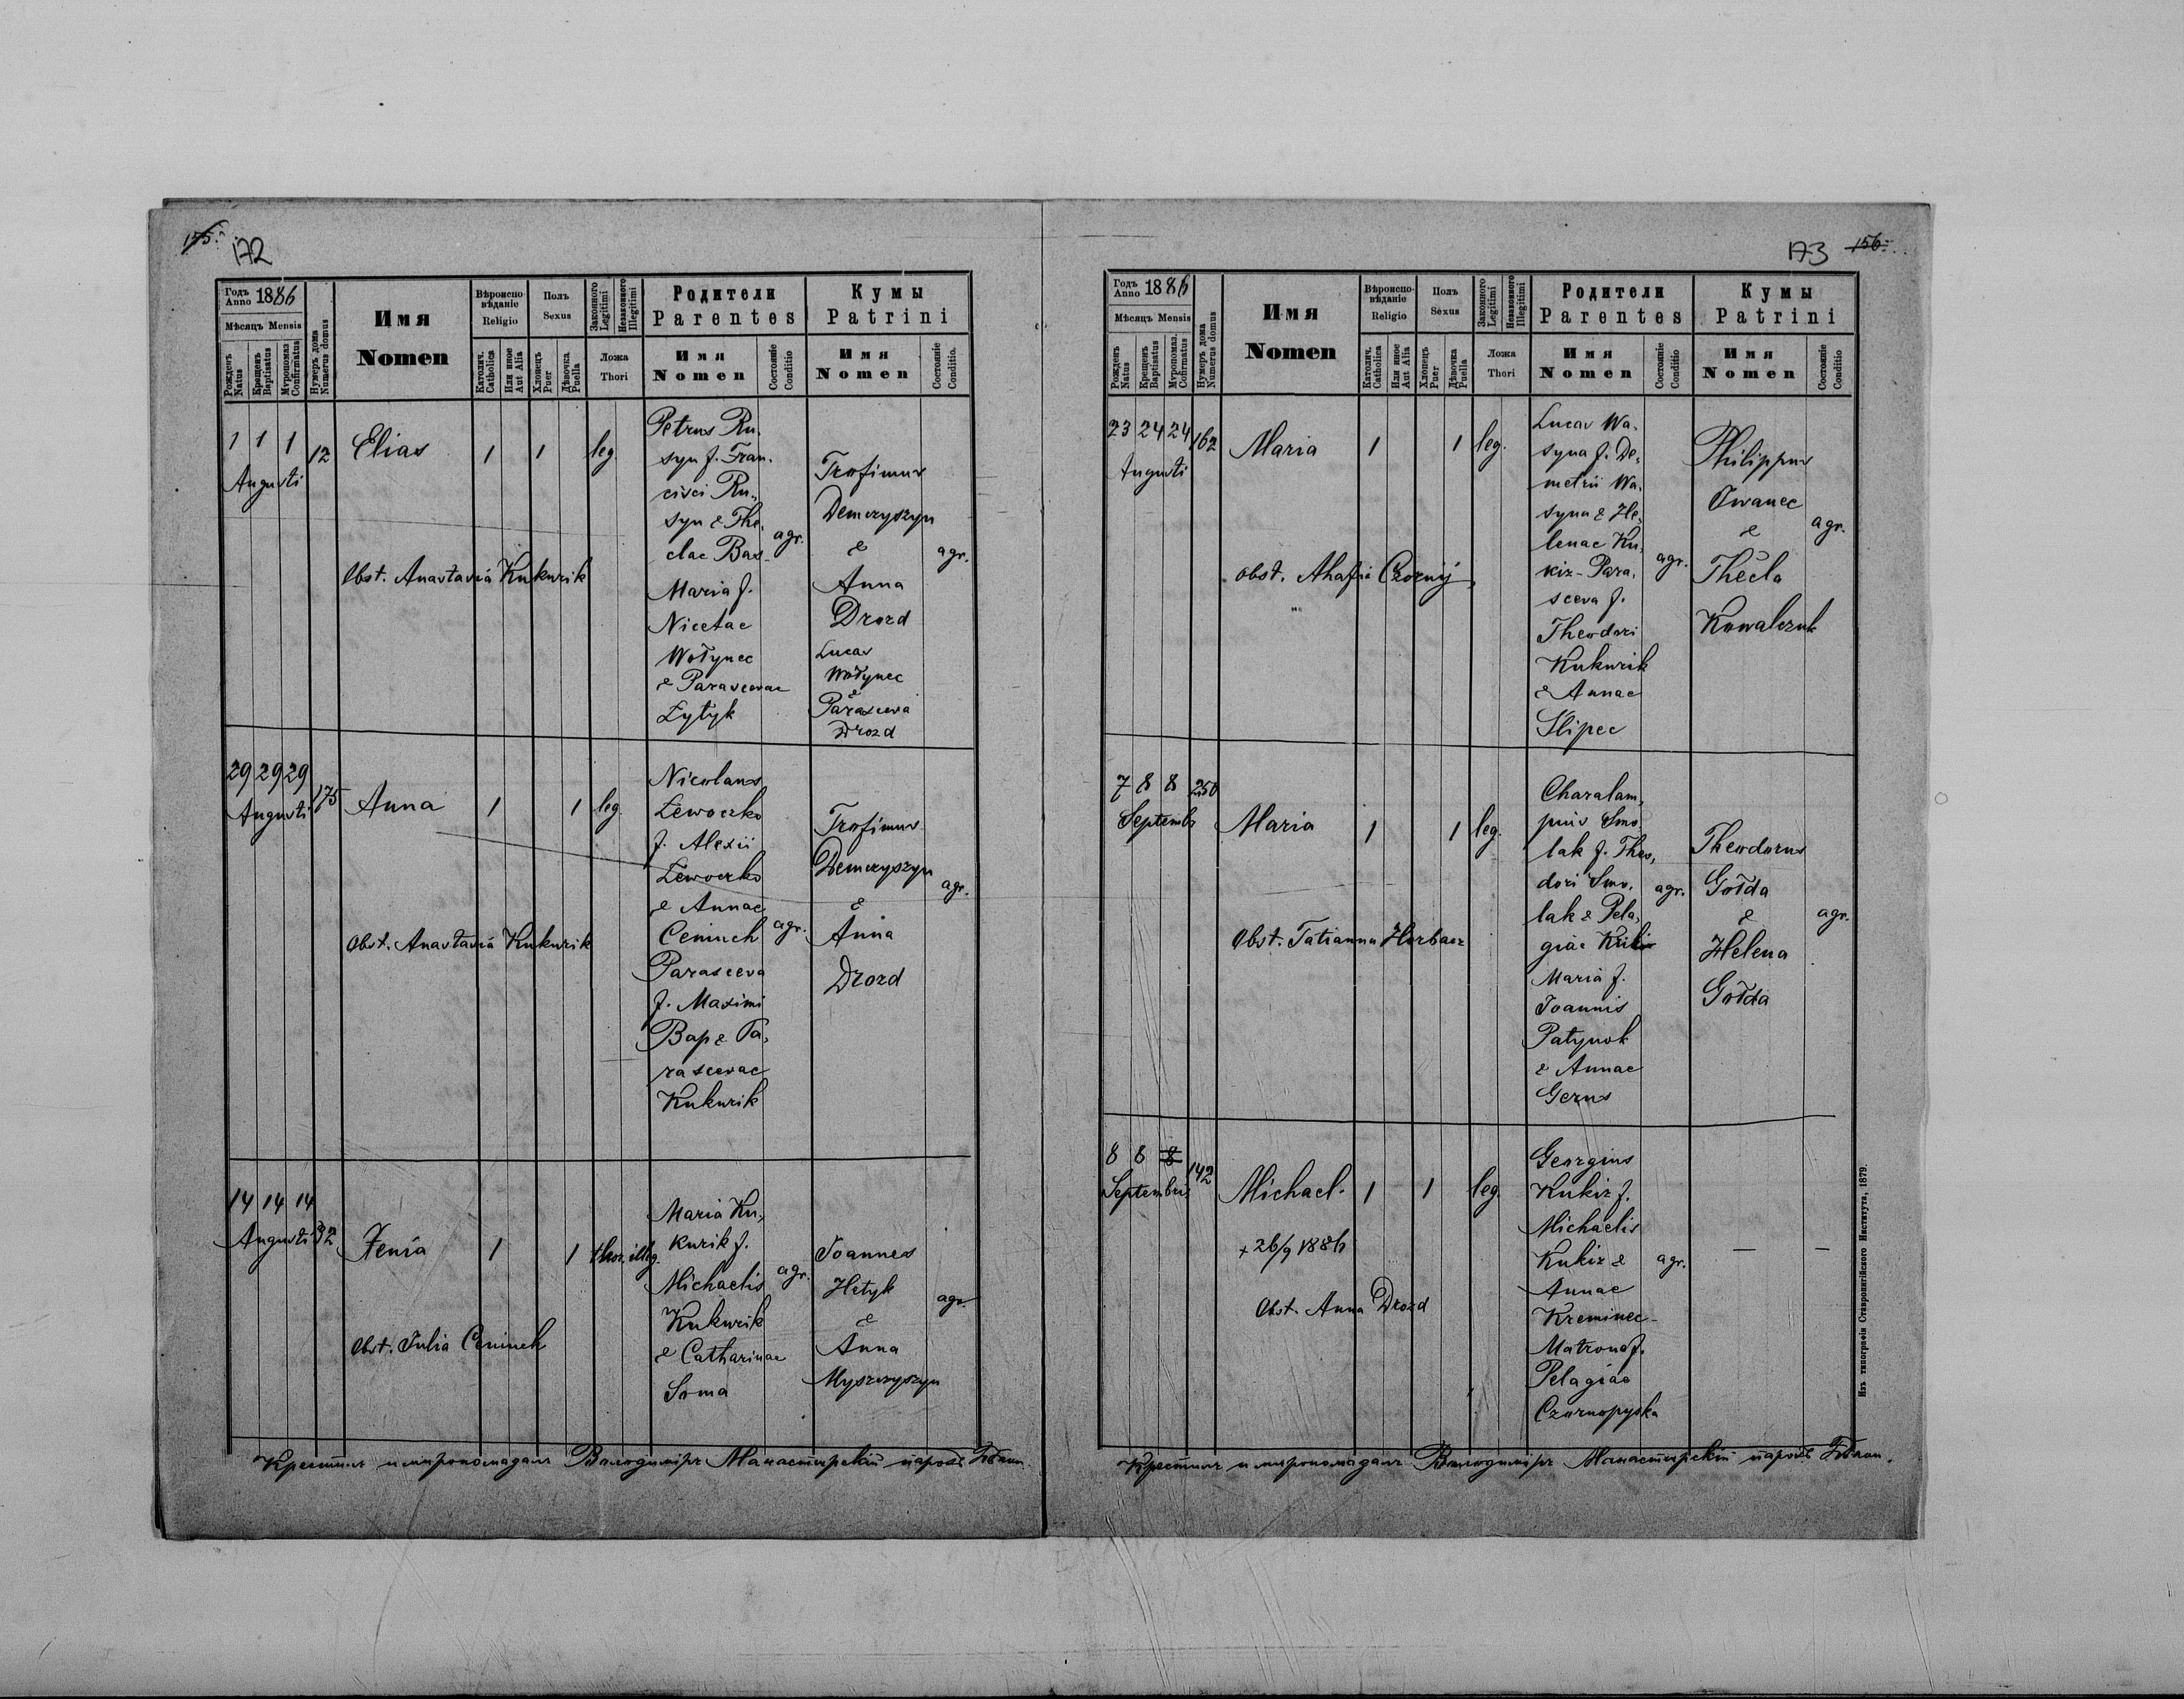 155.
172
Годъ Anno 1886
Мѣсяцъ Mensis
Рожденъ Natus
Крещенъ Baptisatus
Мѵропомаз. Confirmatus
Нумеръ дома Numerus domus
Имя
Nomen
Вѣроиспо-
вѣданіе
Religio
Католич. Catholica
Или иное Aut Alia
Полъ
Sexus
Хлопецъ Puer
Дѣвочка Puella
Законного Legitimi
Незаконного Illegitimi
Ложа
Thori
Родители
Parentes
Имя
Nomen
Состояніе Conditio
Кумы
Patrini
Имя
Nomen
Состояніе Conditio.
1 1 1
Augusti
12
Elias
1
1
leg.
Obst. Anastasia Kukurik
Petrus Ru-
syn f. Fran-
cisci Ru-
syn & The-
clae Bas-
Maria f.
Nicetae
Wołynec
& Parascevae
Zytyk
agr.
Trofimus
Demczyszyn
&
Anna
Drozd
Lucas
Wołynec
&
Parasceva
Drozd
agr.
29 29 29
Augusti
175
Anna
1
1
leg.
Obst. Anastasia Kukurik
Nicolaus
Lewoczko
f. Alexii
Lewoczko
& Annae
Ceniuch
Parasceva
f. Maximi
Bap & Pa-
rascevae
Kukurik
agr.
Trofimus
Demczyszyn
&
Anna
Drozd
agr.
14 14 14
Augusti
32
Xenia
1
1
thor. illeg.
Obst. Julia Ceniuch
Maria Ku-
kurik f.
Michaelis
Kukurik
& Catharinae
Soma
agr.
Joannes
Hetyk
&
Anna
Myszczyszyn
agr.
Крестилъ и миропомазалъ Володиміръ Манастирскій парохъ
173
156.
Годъ Anno 1886
Мѣсяцъ Mensis
Рожденъ Natus
Крещенъ Baptisatus
Мѵропомаз. Confirmatus
Нумеръ дома Numerus domus
Имя
Nomen
Вѣроиспо-
вѣданіе
Religio
Католич. Catholica
Или иное Aut Alia
Полъ
Sexus
Хлопецъ Puer
Дѣвочка Puella
Законного Legitimi
Незаконного Illegitimi
Ложа
Thori
Родители
Parentes
Имя
Nomen
Состояніе Conditio
Кумы
Patrini
Имя
Nomen
Состояніе Conditio
23 24 24
Augusti
162
Maria
1
1
leg.
Obst. Ahafia Czornij
Lucas Wa-
syna f. De-
metrii Wa-
syna & He-
lenae Ku-
kiz - Para-
sceva f.
Theodori
Kukurik
& Annae
Slipec
agr.
Philippus
Owanec
&
Thecla
Kowalczuk
agr.
7 8 8
Septembr
250
Maria
1
1
leg.
Obst. Tatianna Horbacz
Charalam-
pius Smo
lak f. Theo-
dori Smo-
lak & Pela-
giae
Maria f.
Joannis
Patynok
& Annae
Gerus
agr.
Theodorus
Gołda
&
Helena
Gołda
agr.
8 8 8
Septembris
142
Michael.
1
1
leg.
+ 26/9 1886
Obst. Anna Drozd
Georgius
Kukiz f.
Michaelis
Kukiz &
Annae
Kreminec -
Matrona f.
Pelagiae
Czornopyska
agr.
— —
Крестилъ и миропомазалъ Володиміръ Манастирскій парохъ
Изъ типографіи Ставропигійского Института, 1879.